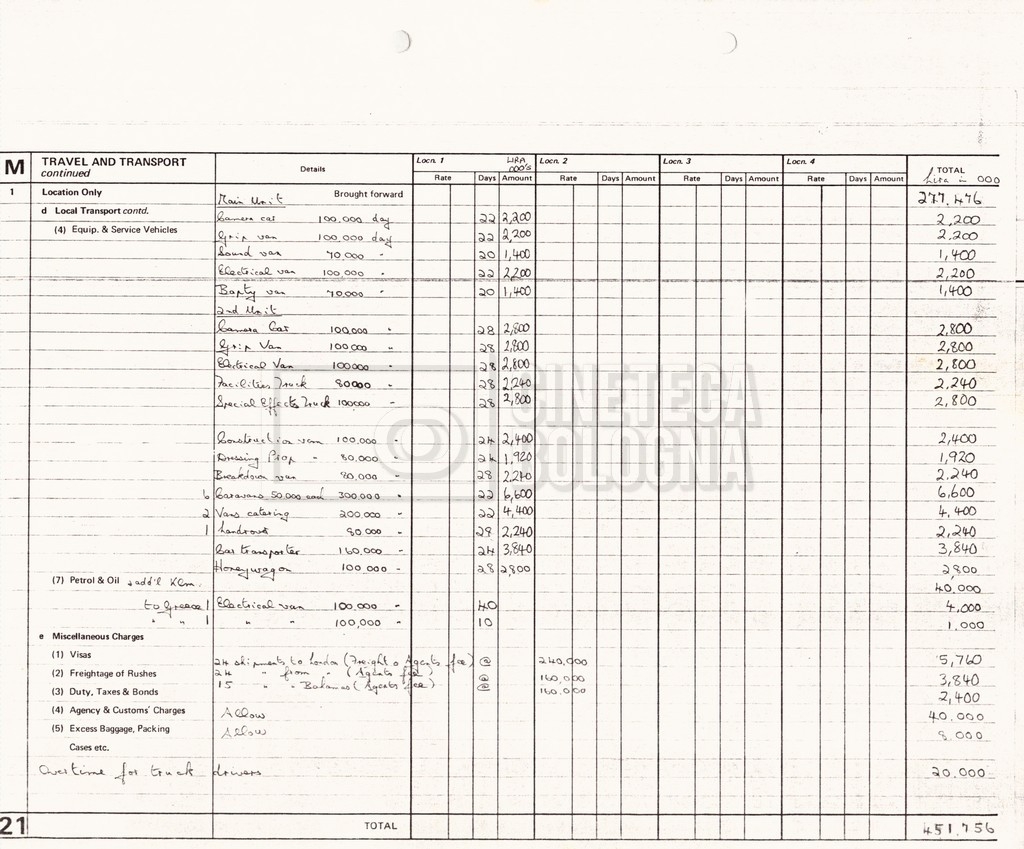 M TRAVEL AND TRANSPORT continued Details Locn. 1 LIRA 000's Locn. 2 Locn. 3 Locn. 4 TOTAL Lira in 000
Rate Days Amount Rate Days Amount Rate Days Amount Rate Days Amount
1 Location Only Main Unit Brought forward 277.476
d Local Transport contd. Camera car 100.000 day 22 2,200 2,200
(4) Equip. & Service Vehicles Grip van 100.000 day 22 2,200 2.200
Sound van 70.000 " 20 1,400 1,400
Electrical van 100,000 " 22 2,200 2,200
Bapty van 70.000 " 20 1,400 1,400
2nd Unit
Camera Car 100,000 " 28 2,800 2,800
Grip Van 100,000 " 28 2,800 2,800
Electrical Van 100000 " 28 2,800 2,800
Facilities Truck 80000 " 28 2,240 2,240
Special Effects Truck 100000 " 28 2,800 2,800
Construction van 100,000 " 24 2,400 2,400
Dressing Prop " 80,000 " 24 1,920 1,920
Breakdown van 80,000 " 28 2,240 2.240
6 Caravans 50.000 each 300.000 " 22 6,600 6,600
2 Vans catering 200.000 " 22 4,400 4,400
1 Landrover 80.000 " 28 2,240 2,240
Car transporter 160,000 " 24 3,840 3,840
Honeywagon 100.000 " 28 2,800 2800
(7) Petrol & Oil + add'l Klm. 40,000
to Greece 1 Electrical van 100,000 " 40 4,000
" " 1 " " 100,000 " 10 1.000
e Miscellaneous Charges
(1) Visas 24 shipments to London (Freight & Agents fee) @ 240,000 5,760
(2) Freightage of Rushes 24 " from " (Agents fee) @ 160,000 3,840
(3) Duty, Taxes & Bonds 15 " " Bahamas (Agents fee) @ 160.000 2,400
(4) Agency & Customs' Charges Allow 40.000
(5) Excess Baggage, Packing Cases etc. Allow 8.000
Overtime for truck drivers 20.000
21 TOTAL 451.756
CINETECA
BOLOGNA